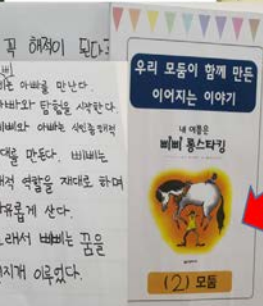 꼭 해적이 된다
는 아빠를 만난다.
아빠와 탐험을 시작한다.
삐삐와 아빠는 식인종해적
대를 만든다. 삐삐는
해적 역할을 재대로 하며
자유롭게 산다.
그래서 삐삐는 꿈을
이루었다.
우리 모둠이 함께 만든
이어지는 이야기
내 이름은
삐삐 롱스타킹
(2) 모둠